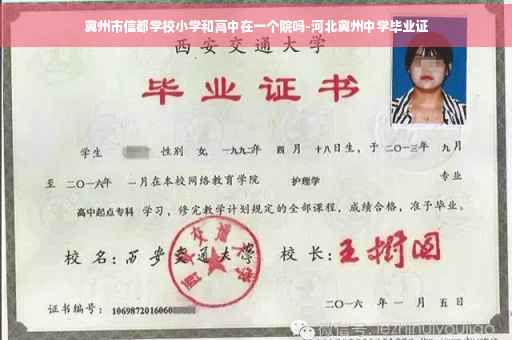 冀州市信都学校小学和高中在一个院吗-河北冀州中学毕业证
西安交通大学
毕业证书
学生 性别 女, 一九九二年 四月 十八日生, 于二〇一三年 九月
至 二〇一六年 一月在本校网络教育学院 护理学 专业
高中起点专科 学习, 修完教学计划规定的全部课程, 成绩合格, 准予毕业。
校名: 西安交通大学 校长: 王树国
证书编号: 1069872016060
二〇一六年 一月 五日
微信号: jezhinuiyoujiao